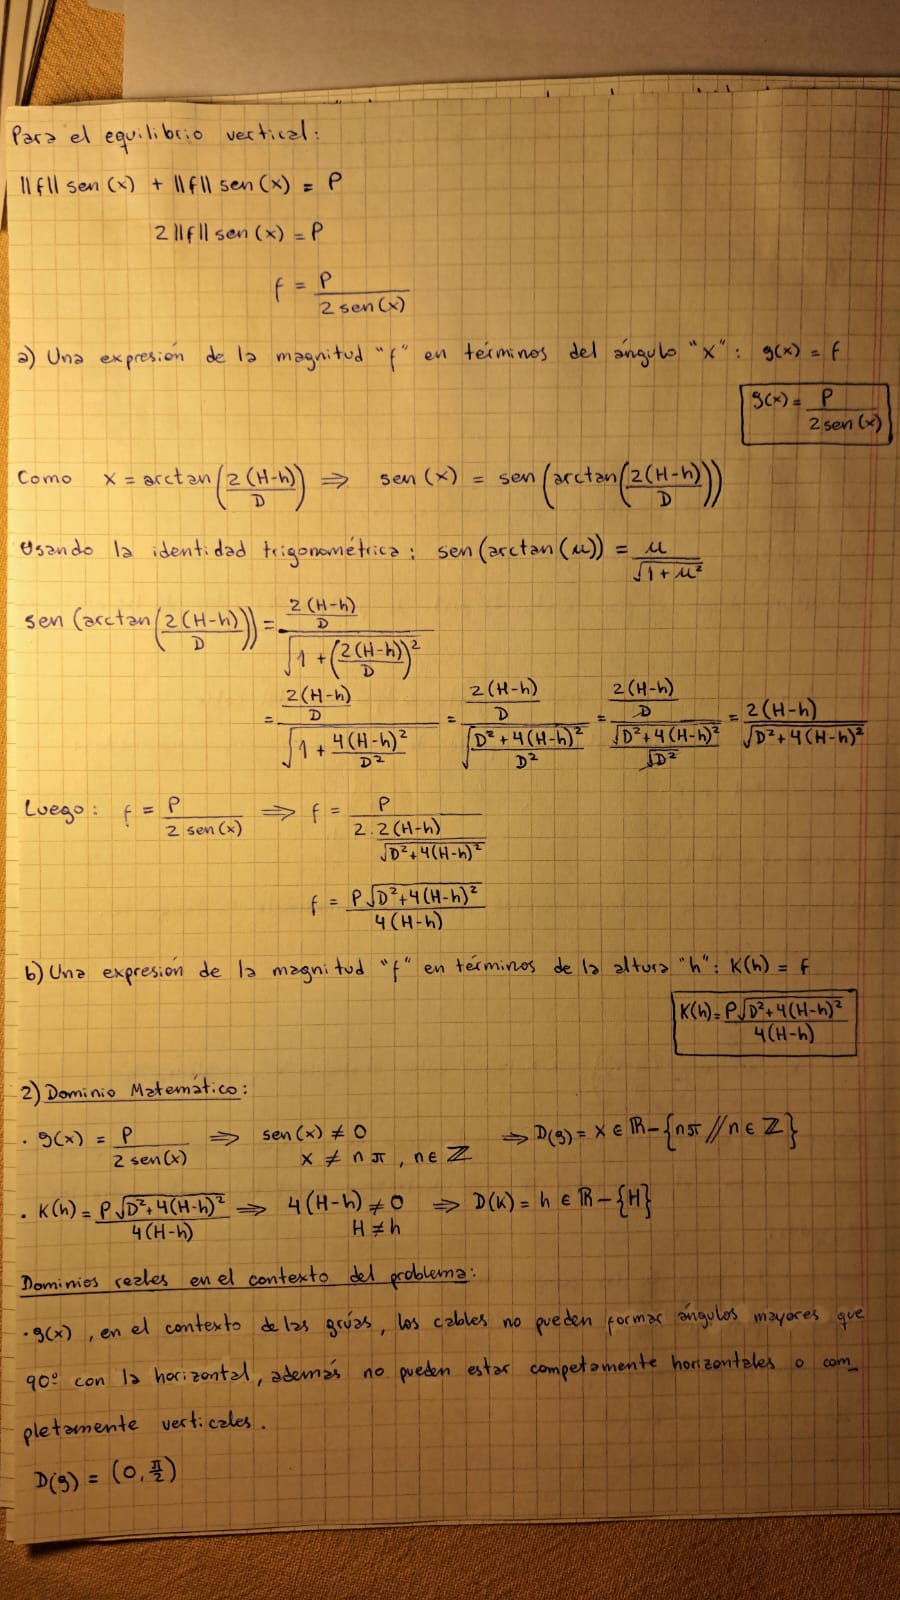 Para el equilibrio vertical:
||f|| sen (x) + ||f|| sen (x) = P
2 ||f|| sen (x) = P
f = P / 2 sen (x)
a) Una expresión de la magnitud "f" en términos del ángulo "x": g(x) = f
g(x) = P / 2 sen (x)
Como x = arctan (2(H-h) / D) ⇒ sen (x) = sen (arctan (2(H-h) / D))
Usando la identidad trigonométrica: sen (arctan (μ)) = μ / √(1 + μ²)
sen (arctan (2(H-h) / D)) = (2(H-h) / D) / √(1 + (2(H-h) / D)²)
= (2(H-h) / D) / √(1 + 4(H-h)² / D²) = (2(H-h) / D) / √((D² + 4(H-h)²) / D²) = (2(H-h) / D) / (√(D² + 4(H-h)²) / √D²) = 2(H-h) / √(D² + 4(H-h)²)
Luego: f = P / 2 sen (x) ⇒ f = P / (2 . 2(H-h) / √(D² + 4(H-h)²))
f = P √(D² + 4(H-h)²) / 4(H-h)
b) Una expresión de la magnitud "f" en términos de la altura "h": K(h) = f
K(h) = P √(D² + 4(H-h)²) / 4(H-h)
2) Dominio Matemático:
. g(x) = P / 2 sen (x) ⇒ sen (x) ≠ 0 ⇒ D(g) = x ∈ ℝ - {nπ // n ∈ ℤ}
x ≠ n π , n ∈ ℤ
. K(h) = P √(D² + 4(H-h)²) / 4(H-h) ⇒ 4(H-h) ≠ 0 ⇒ D(K) = h ∈ ℝ - {H}
H ≠ h
Dominios reales en el contexto del problema:
. g(x) , en el contexto de las grúas, los cables no pueden formar ángulos mayores que
90° con la horizontal, además no pueden estar competamente horizontales o com_
pletamente verticales.
D(g) = (0, π/2)